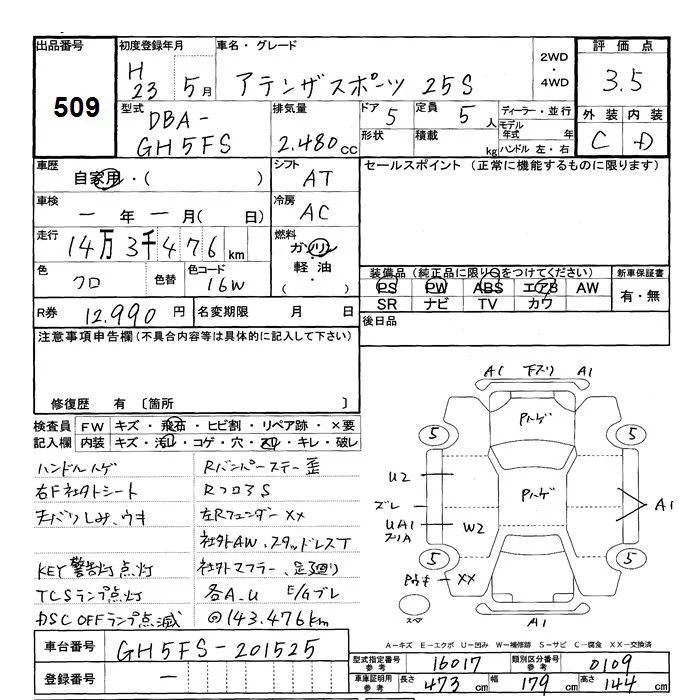 出品番号
509
初度登録年月
H 23 5月
車名・グレード
アテンザスポーツ 25S
2WD・4WD
評価点
3.5
外装 内装
C D
型式
DBA-
GH5FS
排気量
2.480 CC
ドア 5
定員 5 人
ディーラー・並行
形状
積載 kg
モデル年式 年
ハンドル 左・右
車歴
自家用・( )
シフト
AT
セールスポイント (正常に機能するものに限ります)
車検
ー 年 ー 月 ( 日)
冷房
AC
走行
14万 3千 4 7 6 km
燃料
ガソリン・軽油・( )
色
クロ
色替
色コード
16W
装備品 (純正品に限り○をつけてください)
新車保証書
PS PW ABS エアB AW
SR ナビ TV カワ
有・無
R券 12.990 円
名変期限 月 日
後日品
注意事項申告欄 (不具合内容等は具体的に記入して下さい)
修復歴 有 〔箇所 〕
検査員記入欄
FW キズ・飛石・ヒビ割・リペア跡・×要
内装 キズ・汚れ・コゲ・穴・スリ・キレ・破レ
ハンドルハゲ
Rバンパーステー歪
右F社外シート
RフロアS
天バリしみ、ウキ
左Rフェンダー XX
社外AW、スタッドレスT
KEY警告灯点灯
社外マフラー、足回り
TCSランプ点灯
各A.U E/Gブレ
DSC OFFランプ点滅
◎143.476km
A1 下スリ A1
Pハゲ
5 5
U2
Pハゲ
ズレ
A1
UA1
W2
5 5
XX
スペア
A1
A-キズ E-エクボ U-凹み W-補修跡 S-サビ C-腐食 XX-交換済
車台番号
GH5FS-201525
登録番号
ー
型式指定番号 参考 16017
類別区分番号 参考 0109
車庫証明用 参考
長さ 473 cm 幅 179 cm 高さ 144 cm